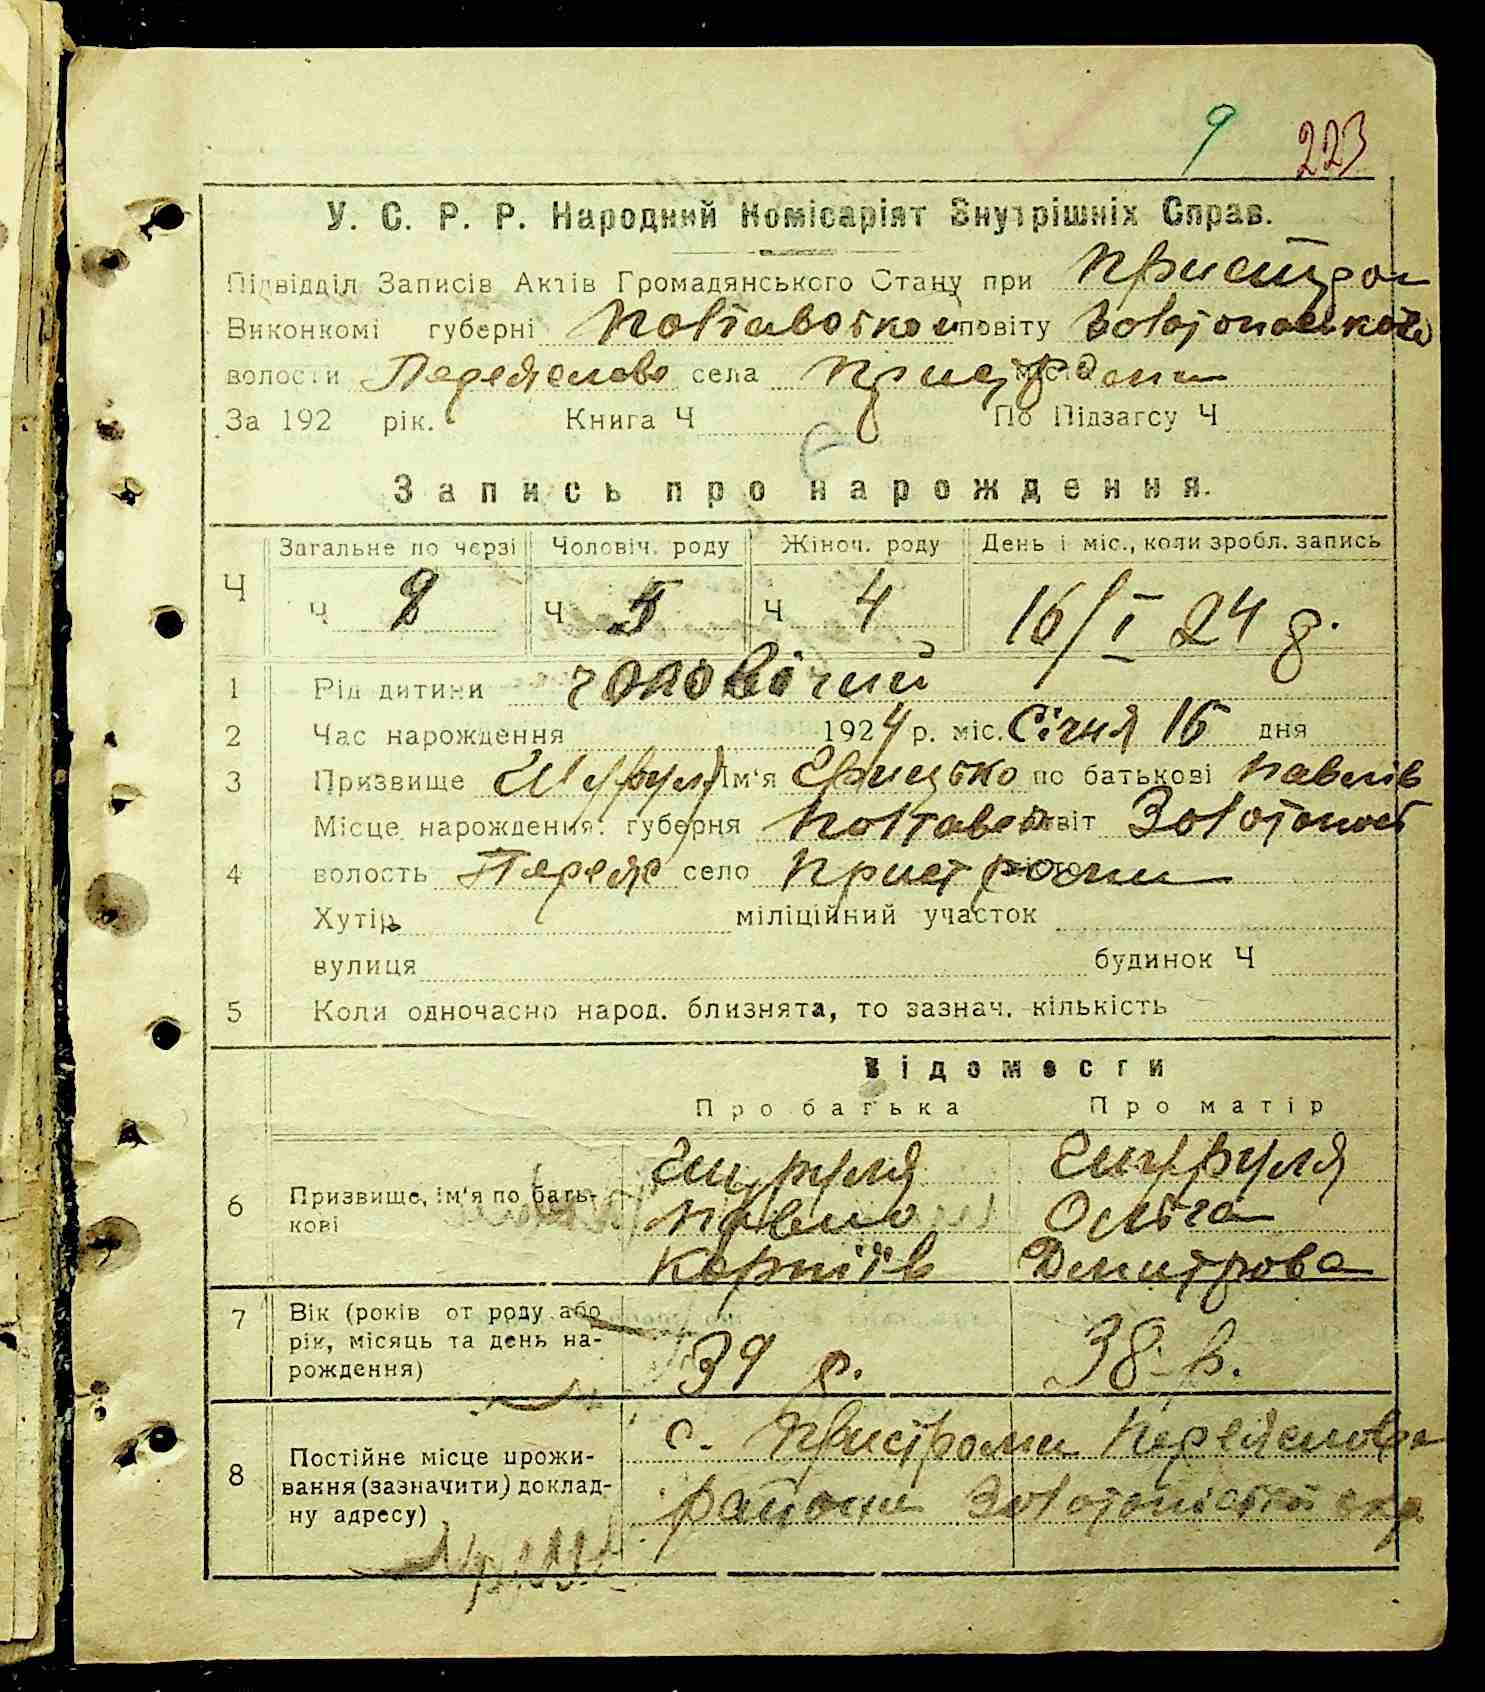 9 223
У. С. Р. Р. Народний Комісаріят Внутрішніх Справ.
Підвідділ Записів Актів Громадянського Стану при Пристром
Виконкомі губерні Полтавської повіту Золотоноського
волости Переяслово села Пристроми
За 192 рік. Книга Ч По Підзагсу Ч
Запись про нарождення.
Ч Загальне по черзі Чоловіч. роду Жіноч. роду День і міс., коли зробл. запись
Ч 9 Ч 5 Ч 4 16/I 24 р.
1 Рід дитини чоловічий
2 Час нарождення 1924 р. міс. Січня 15 дня
3 Призвище Шуруля Ім'я Грицько по батькові Павлів
Місце нарождення: губерня Полтавс повіт Золотоност
4 волость Переяс село Пристроми
Хутір міліційний участок
вулиця будинок Ч
5 Коли одночасно народ. близнята, то зазнач. кількість
Відомости
Про батька Про матір
6 Призвище, ім'я по бать-
кові
Шуруля
Павло
Корніїв
Шуруля
Ольга
Дмитрова
7 Вік (років от роду або
рік, місяць та день на-
рождення)
39 р. 38 р.
8 Постійне місце прожи-
вання (зазначити) доклад-
ну адресу)
с. Пристроми Переяслова
района Золотоніській окр